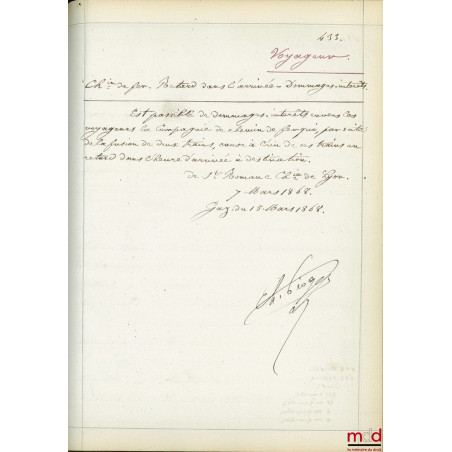 433.
Voyageur
Ch.in de fer. Retard dans l'arrivée = Dommages intérêts.
Est passible de dommages-intérêts envers ces
voyageurs la Compagnie de chemin de fer qui, par suite
de la fusion de deux trains, cause à l'un de ces trains un
retard dans l'heure d'arrivée à destination.
de St Romau c Ch.in de Lyon.
7 Mars 1868.
Gaz. du 15 Mars 1868.
mdd
la mémoire du droit